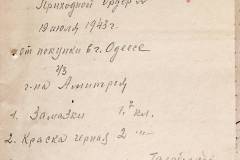 Приходной Ордер №
19 июля 1943 г.
от покупки в г. Одессе
у/з
г-на Амитрея
1. Замазки 1,7 кл.
2. Краска черная 2 "